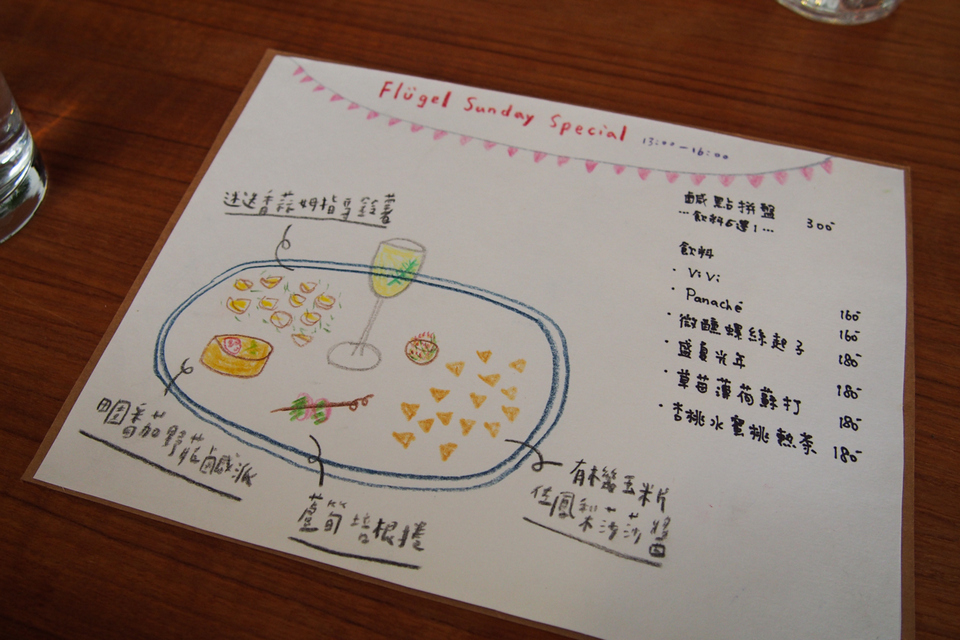 Flügel Sunday Special 13:00-16:00
鹹點拼盤 300-
…飲料6選1…
飲料
· ViVi 160-
· Panaché 160-
· 微醺螺絲起子 180-
· 盛夏光年 180-
· 草莓薄荷蘇打 180-
· 杏桃水蜜桃熱茶 180-
迷迭香蒜姆指馬鈴薯
田園番茄野菇鹹派
蘆筍培根捲
有機玉米片
佐鳳梨莎莎醬